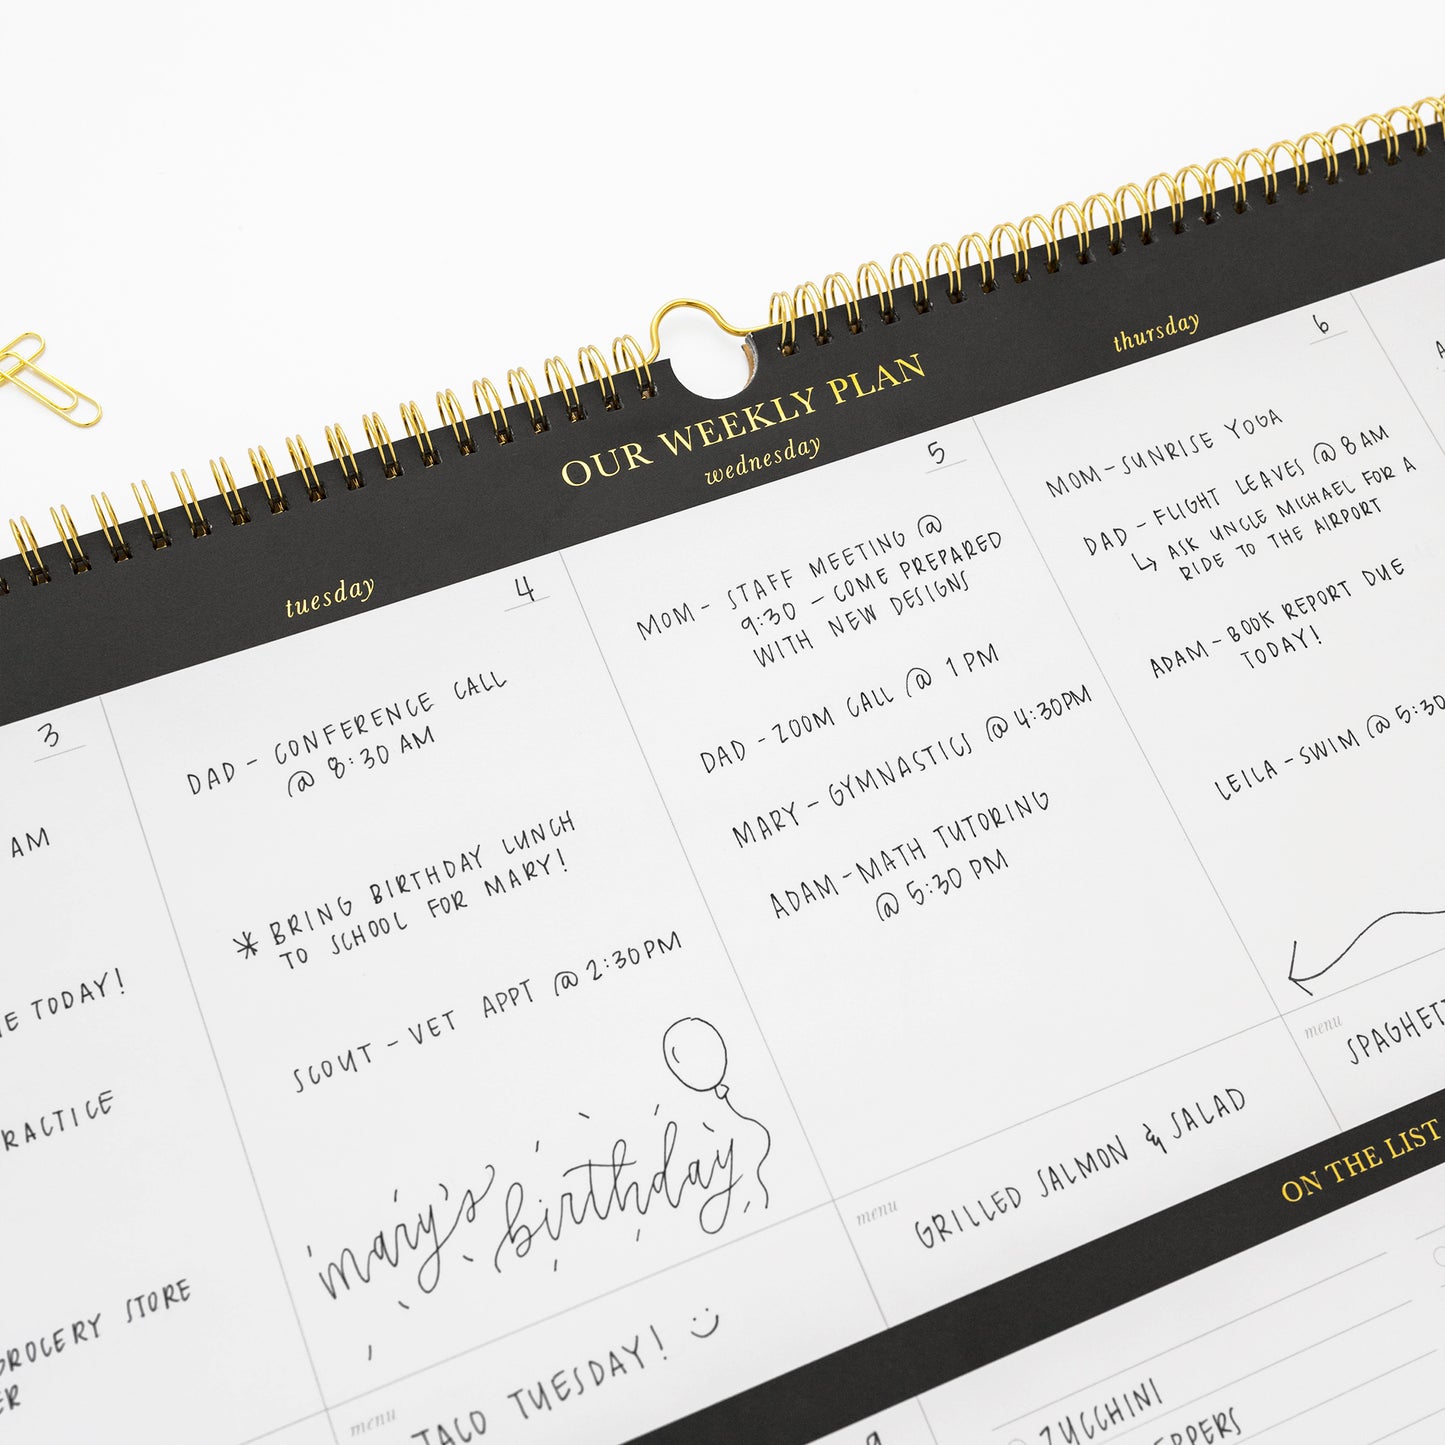 OUR WEEKLY PLAN
tuesday
wednesday
thursday
3
AM
TODAY!
GROCERY STORE
4
DAD - CONFERENCE CALL
@ 8:30 AM
* BRING BIRTHDAY LUNCH
TO SCHOOL FOR MARY!
SCOUT - VET APPT @ 2:30PM
mary's birthday
menu
TACO TUESDAY!
5
MOM - STAFF MEETING @
9:30 - COME PREPARED
WITH NEW DESIGNS
DAD - ZOOM CALL @ 1 PM
MARY - GYMNASTICS @ 4:30PM
ADAM - MATH TUTORING
@ 5:30 PM
menu
GRILLED SALMON & SALAD
6
MOM - SUNRISE YOGA
DAD - FLIGHT LEAVES @ 8 AM
ASK UNCLE MICHAEL FOR A
RIDE TO THE AIRPORT
ADAM - BOOK REPORT DUE
TODAY!
LEILA - SWIM @ 5:30
menu
ON THE LIST
ZUCCHINI